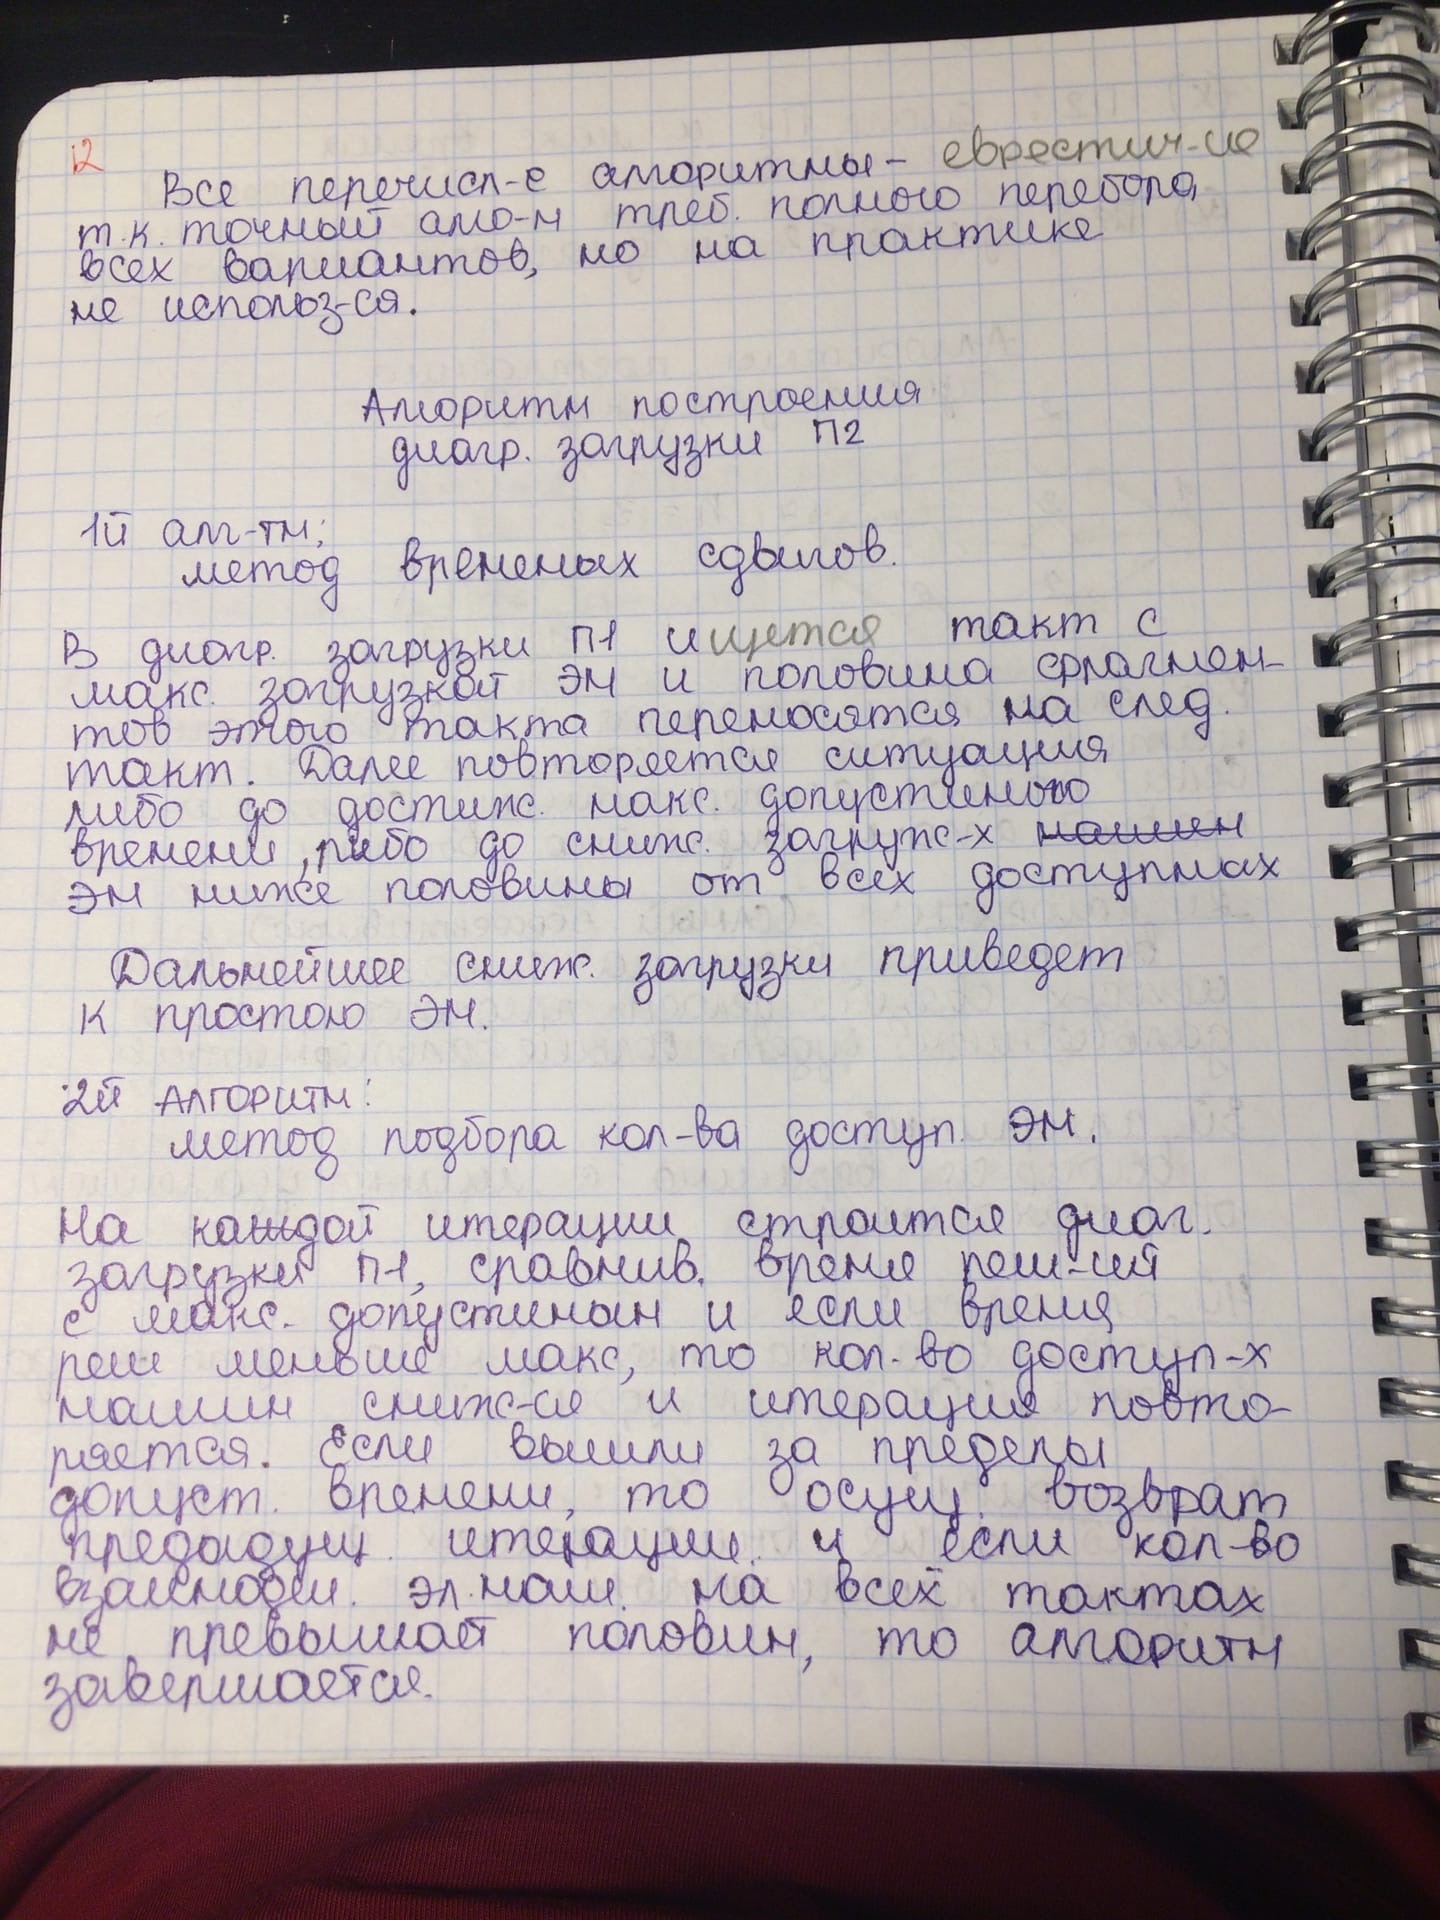 12
Все перечисл-е алгоритмы - еврестич-ие
т.к. точный алго-м треб. полного перебора
всех вариантов, но на практике
не использ-ся.
Алгоритм построения
диагр. загрузки П2
1й алг-тм:
метод временых сдвигов.
В диагр. загрузки П1 ищется такт с
макс. загрузкой ЭМ и половина фрагмен-
тов этого такта переносятся на след.
такт. Далее повторяется ситуация
либо до достиж. макс. допустимого
времени, либо до сниж. загруж-х машин
ЭМ ниже половины от всех доступных
Дальнейшее сниж. загрузки приведет
к простою ЭМ.
2й Алгоритм:
метод подбора кол-ва доступ. ЭМ.
На каждой итерации строится диаг.
загрузки П1, сравнив. время реш-ий
с макс. допустимым и если время
реш меньше макс, то кол-во доступ-х
машин сниж-ся и итерация повто-
ряется. Если вышли за пределы
допуст. времени, то осущ. возврат
предыдущ. итерации. и если кол-во
взаимодей. эл. маш. на всех тактах
не превышает половин, то алгоритм
завершается.